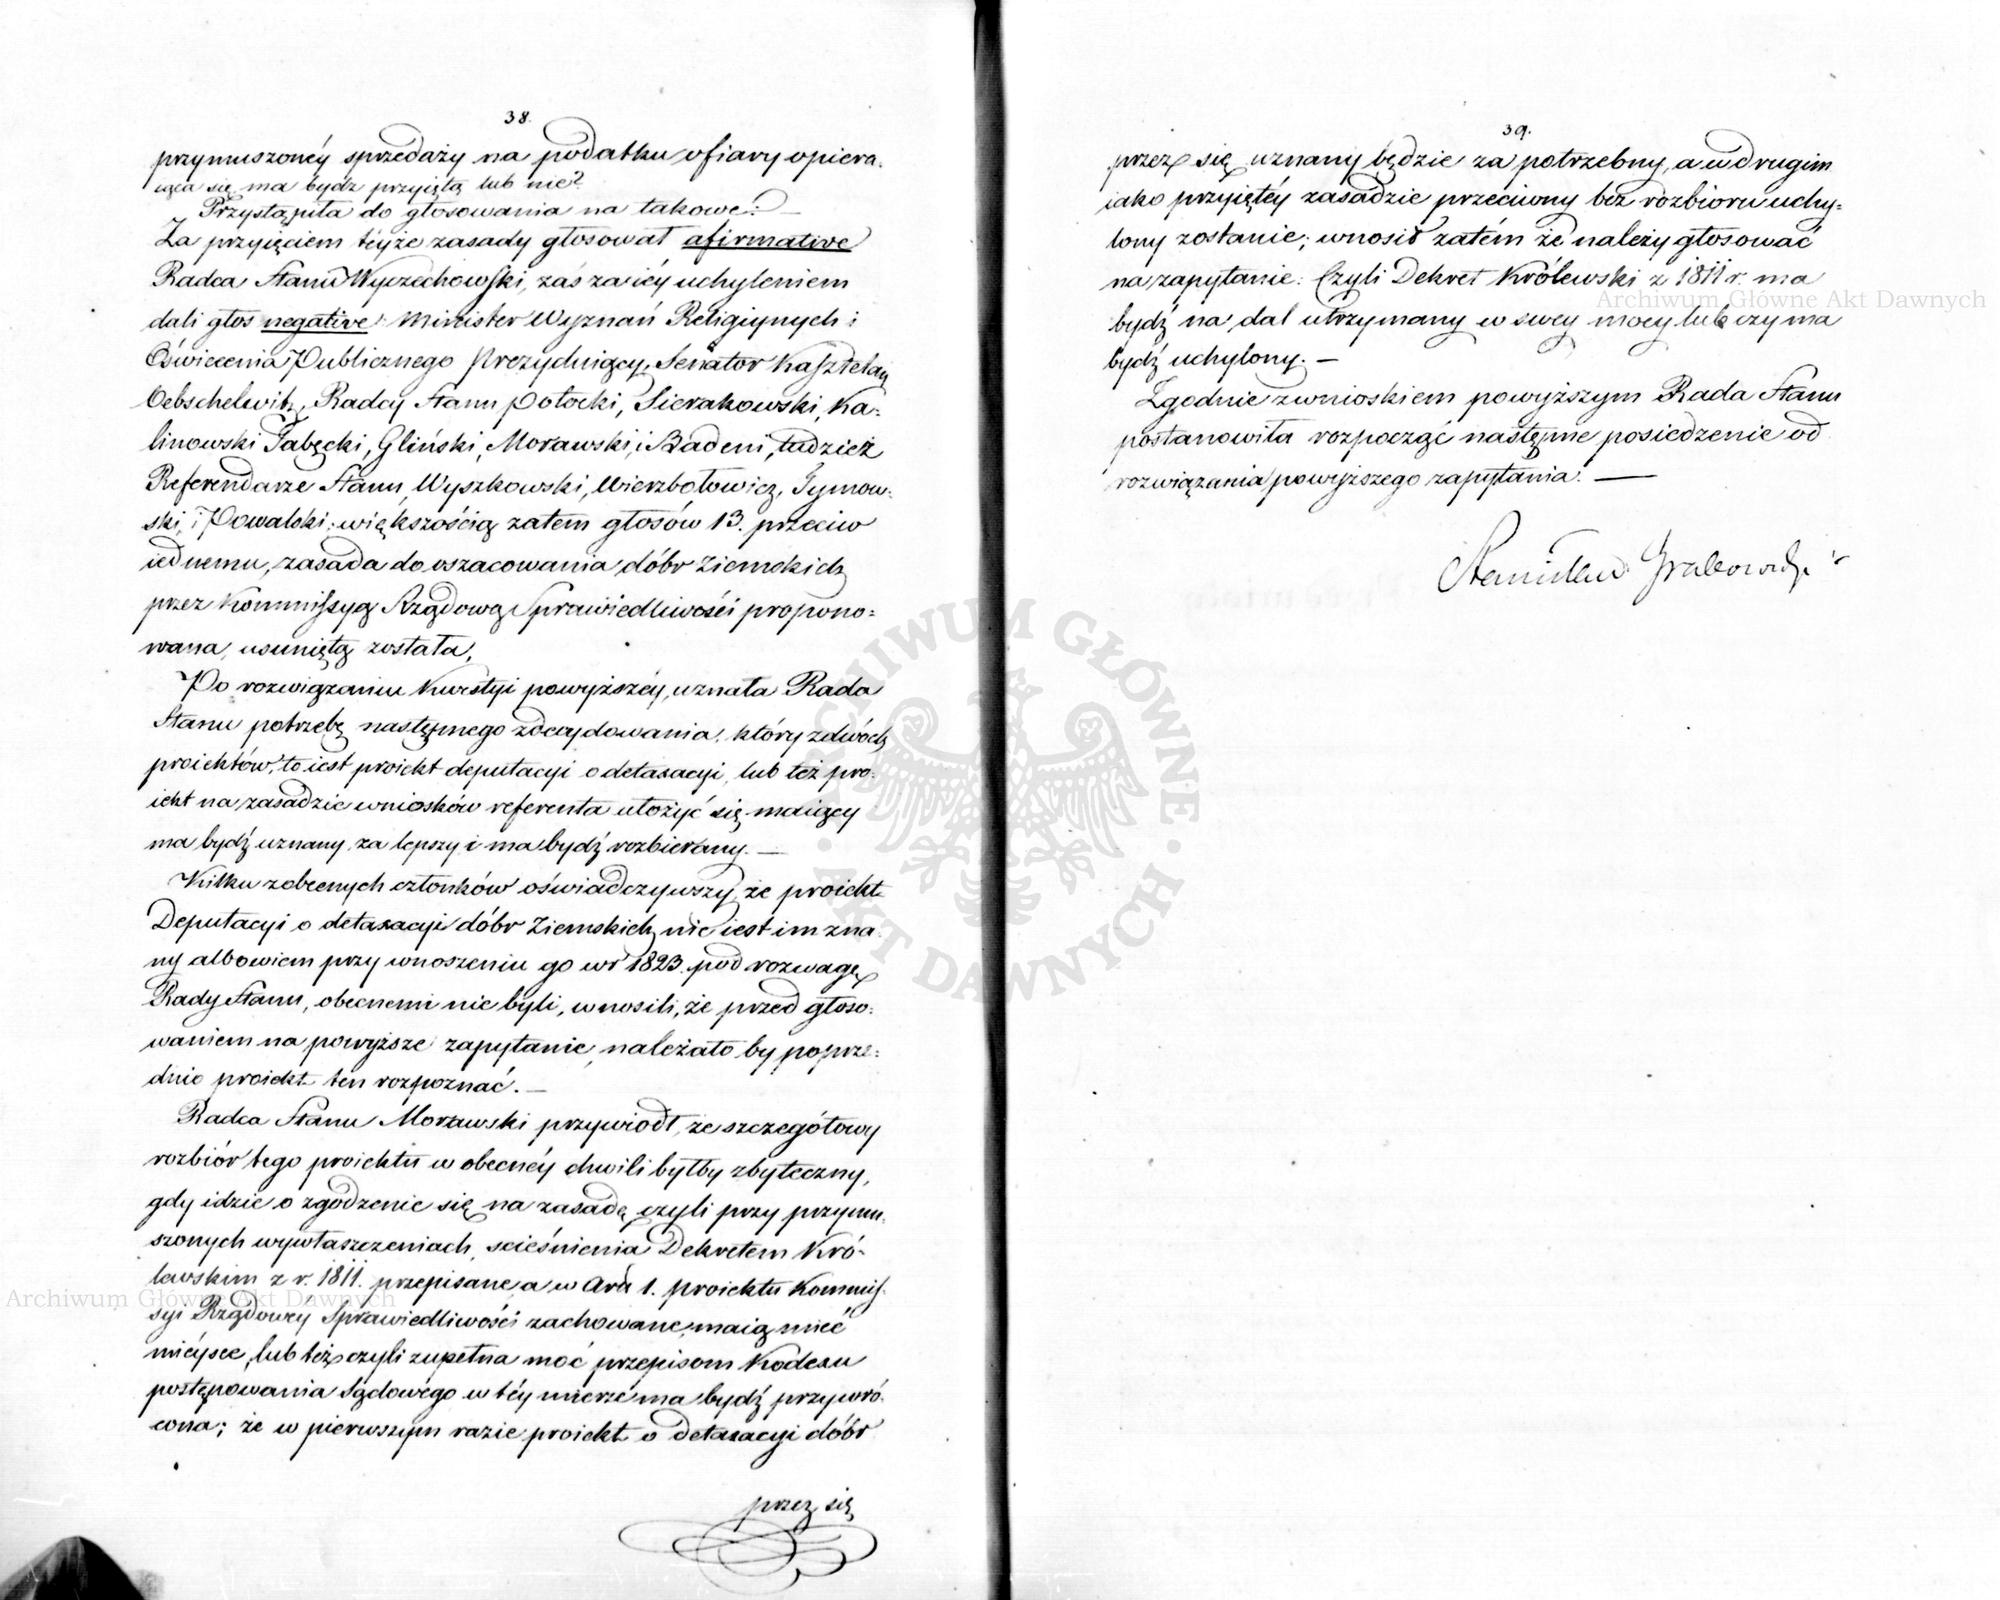 38.
przymuszonéy sprzedaży na podatku ofiary opiera-
iąca się ma bydź przyiętą lub nie?
Przystąpiła do głosowania na takowe: —
Za przyięciem téyże zasady głosował afirmative
Radca Stanu Wyczechowski, zaś za iéy uchyleniem
dali głos negative: Minister Wyznań Religiynych i
Oświecenia Publicznego Prezyduiący, Senator Kasztelan
Oebschelwitz, Radcy Stanu Potocki, Sierakowski, Ka-
linowski Zabęcki, Gliński, Morawski, i Badeni, tudzież
Referendarze Stanu, Wyszkowski, Wierzbołowicz, Tymow-
ski, i Powalski; większością zatem głosów 13. przeciw
iednemu, zasada do oszacowania dóbr Ziemskich
przez Kommissyą Rządową Sprawiedliwości propono-
wana, usuniętą została.
Po rozwiązaniu kwestyi powyższéy, uznała Rada
Stanu potrzebę następnego zdecydowania, który z dwóch
proiektów, to iest proiekt deputacyi o detaxacyi, lub też pro-
iekt na zasadzie wniosków referenta ułożyć się maiący
ma bydź uznany za lepszy i ma bydź rozbierany. —
Kilku z obecnych członków oświadczywszy, że proiekt
Deputacyi o detaxacyi dóbr Ziemskich nie iest im zna-
ny albowiem przy wnoszeniu go w r 1823. pod rozwagę
Rady Stanu, obecnemi nie byli, wnosili, że przed głoso-
waniem na powyższe zapytanie, należało by poprze-
dnio proiekt ten rozpoznać. —
Radca Stanu Morawski przywiódł, że szczegółowy
rozbiór tego proiektu w obecnéy chwili byłby zbyteczny,
gdy idzie o zgodzenie się na zasadę czyli przy przymu-
szonych wywłaszczeniach, scieśnienia Dekretem Kró-
lewskim z r. 1811. przepisane a w Art 1. proiektu Kommis-
syi Rządowéy Sprawiedliwości zachowane, maią mieć
mieysce, lub też czyli zupełna moc przepisom Kodexu
postępowania Sądowego w téy mierze ma bydź przywró-
cona; że w pierwszym razie proiekt o detaxacyi dóbr
przez się
39.
przez się uznany będzie za potrzebny, a w drugim
iako przyiętéy zasadzie przeciwny bez rozbioru uchy-
lony zostanie; wnosił zatém że należy głosować
na zapytanie: Czyli Dekret Królewski z 1811 r. ma
bydź na dal utrzymany w swey mocy lub czy ma
bydź uchylony. —
Zgodnie z wnioskiem powyższym Rada Stanu
postanowiła rozpocząć następne posiedzenie od
rozwiązania powyższego zapytania. —
Stanisław Grabowski
Archiwum Główne Akt Dawnych
Archiwum Główne Akt Dawnych
ARCHIWUM GŁÓWNE · AKT DAWNYCH ·